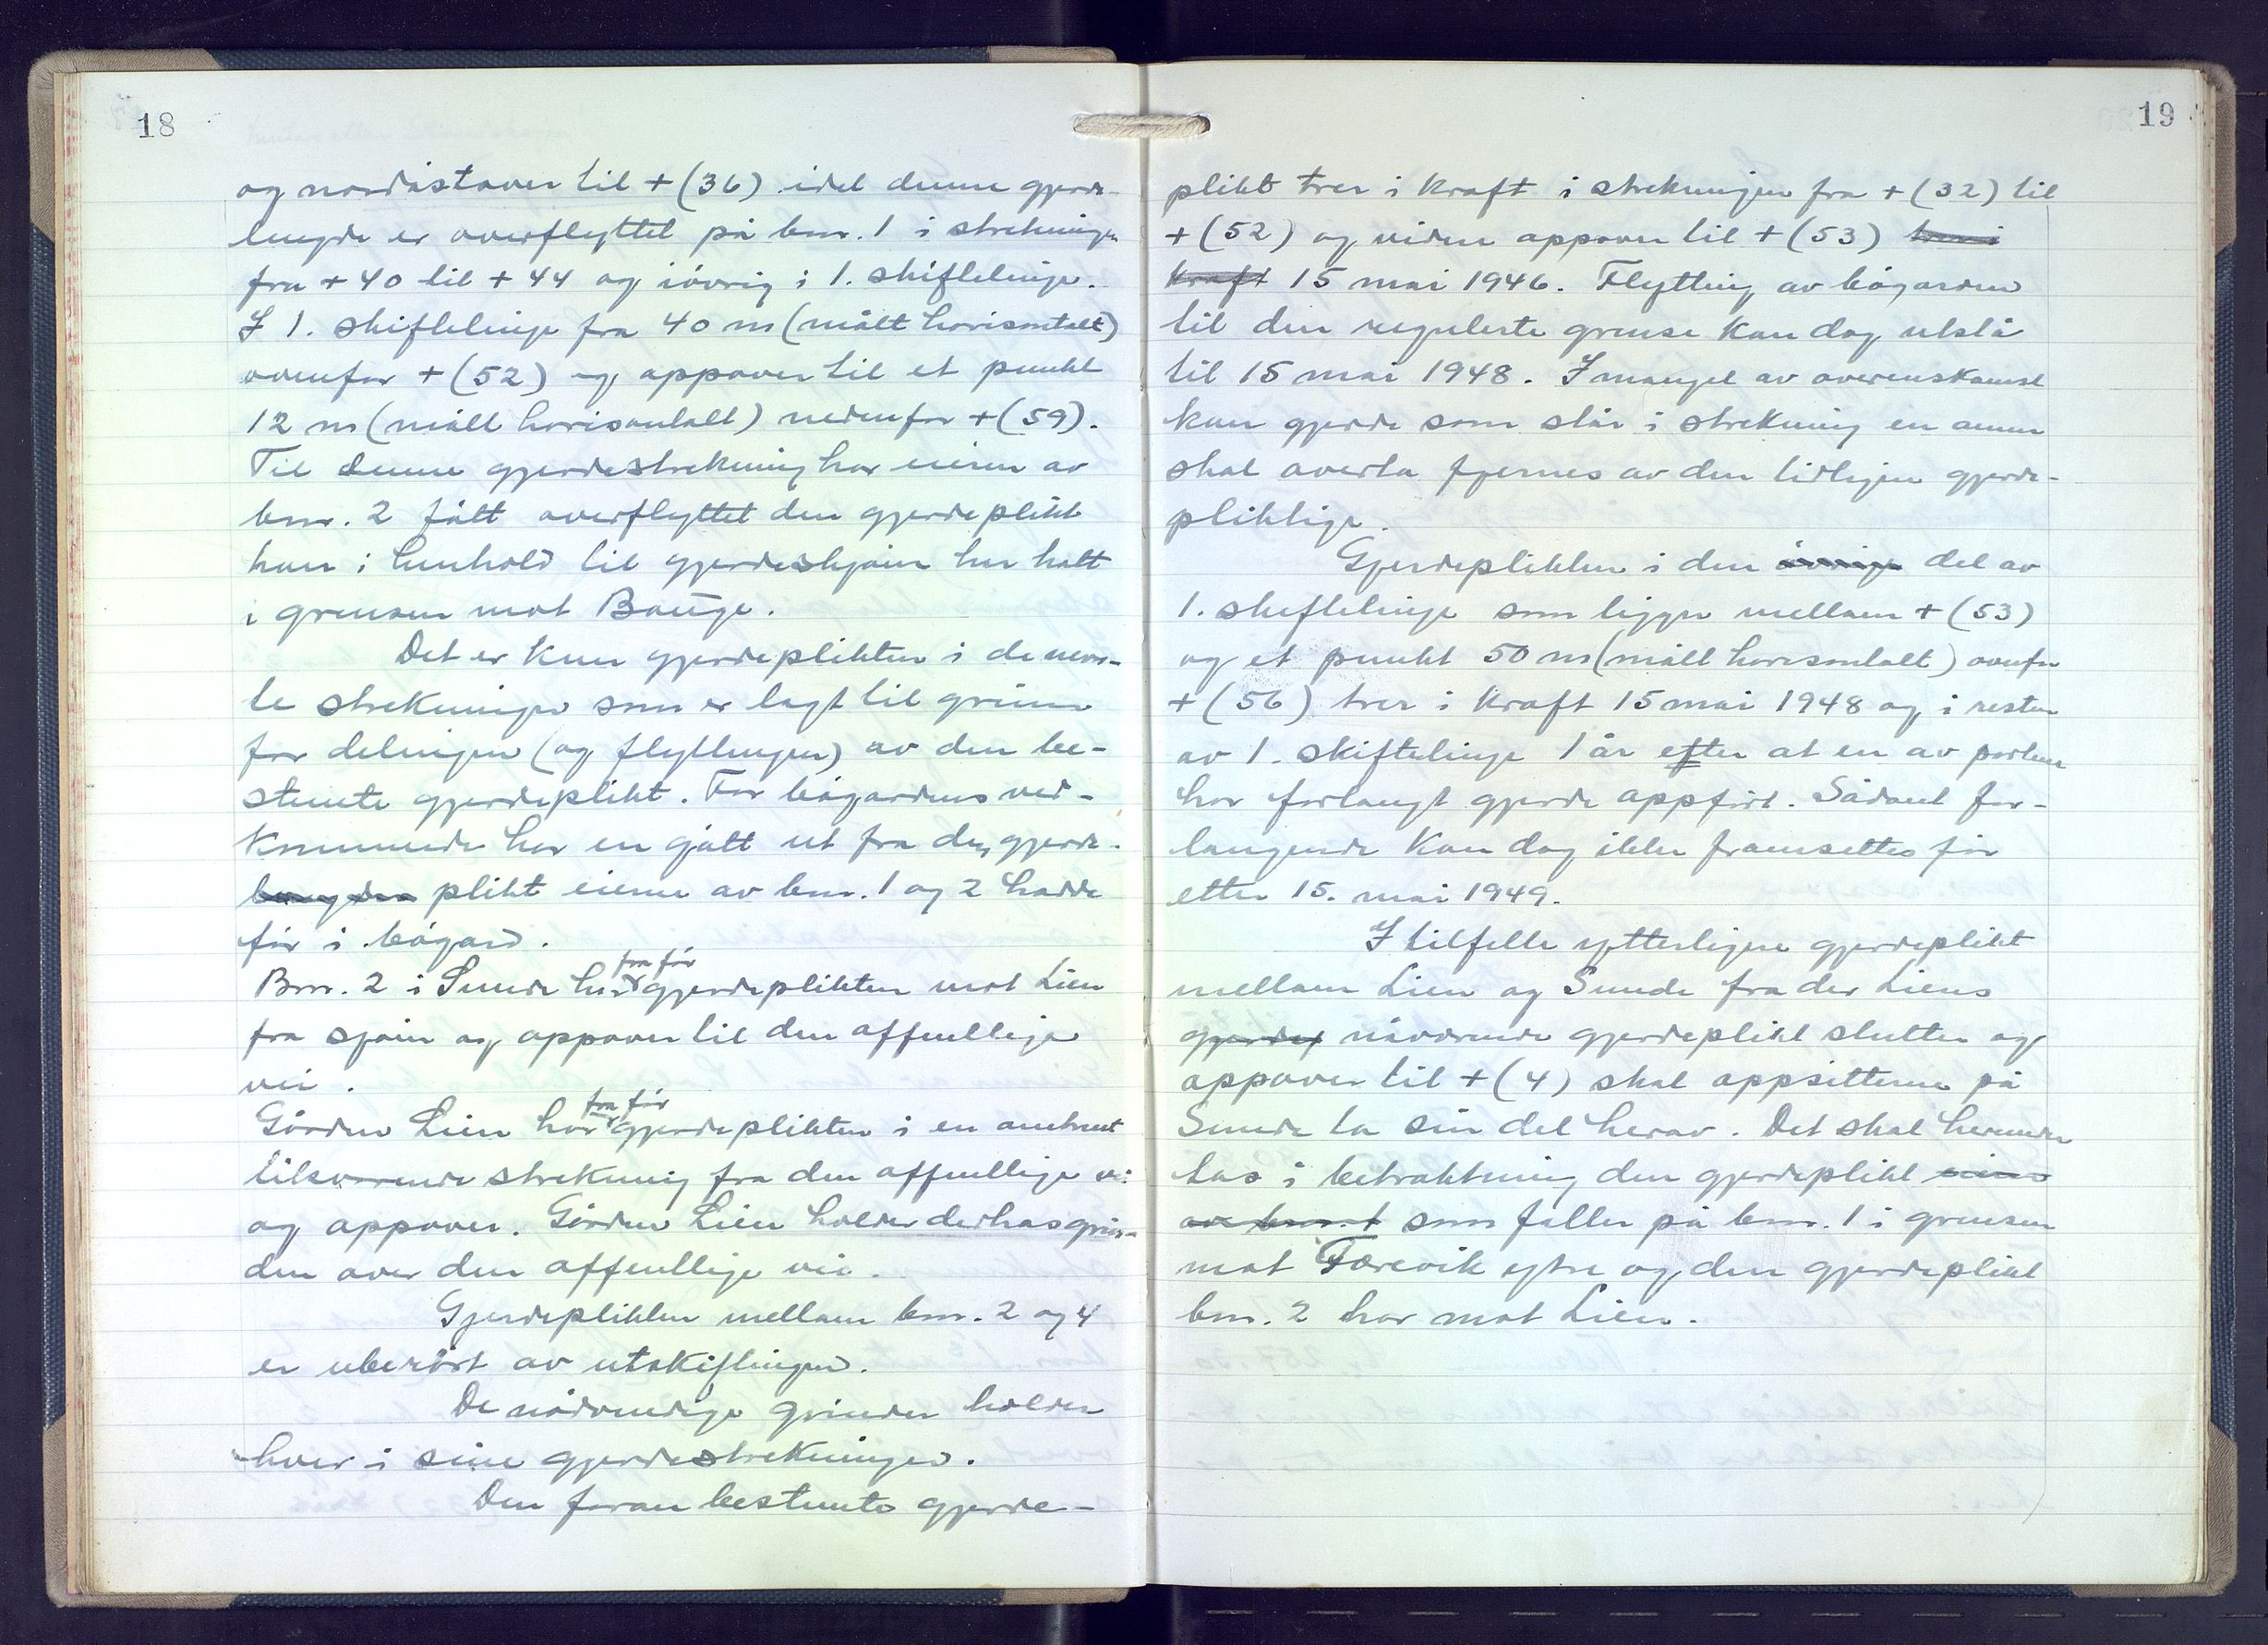 18
og nordöstover til + (36) idet denne gjerde-
lengde er overflyttet på bnr. 1 i strekningen
fra + 40 til + 44 og iövrig i 1. skiftelinje.
I 1. skiftelinje fra 40 m (målt horisontalt)
ovenfor + (52) og oppover til et punkt
12 m (målt horisontalt) nedenfor + (59).
Til denne gjerdestrekning har eieren av
bnr. 2 fått overflyttet den gjerdeplikt
han i henhold til gjerdeskjön har hatt
i grensen mot Bauge.
Det er kun gjerdeplikten i de nevn-
te strekninger som er lagt til grunn
for delingen (og flyttingen) av den be-
stemte gjerdeplikt. For bögardens ved-
kommende har en gått ut fra den gjerde-
lengden plikt eierne av bnr. 1 og 2 hadde
för i bögard.
fra för
Bnr. 2 i Sunde har gjerdeplikten mot Lien
fra sjöen og oppover til den offentlige
vei.
fra för
Gården Lien har gjerdeplikten i en omtrent
tilsvarende strekning fra den offentlige vei
og oppover. Gården Lien holder derhos grin-
den over den offentlige vei.
Gjerdeplikten mellom bnr. 2 og 4
er uberört av utskiftingen.
De nödvendige grinder holder
hver i sine gjerdestrekninger.
Den foran bestemte gjerde-
19
plikt trer i kraft i strekningen fra + (32) til
+ (52) og videre oppover til + (53) trer i
kraft 15 mai 1946. Flytting av bögarden
til den regulerte grense kan dog utstå
til 15 mai 1948. I mangel av overenskomst
kan gjerde som står i strekning en annen
skal overta fjernes av den tidligere gjerde-
pliktige.
Gjerdeplikten i den övrige del av
1. skiftelinje som ligger mellom + (53)
og et punkt 50 m (målt horisontalt) ovenfor
+ (56) trer i kraft 15 mai 1948 og i resten
av 1. skiftelinje 1 år efter at en av partene
har forlangt gjerde oppfört. Sådant for-
langende kan dog ikke framsettes för
etter 15. mai 1949.
I tilfelle ytterligere gjerdeplikt
mellom Lien og Sunde fra der Liens
gjerdepl nåværende gjerdeplikt slutter og
oppover til + (4) skal oppsitterne på
Sunde ta sin del herav. Det skal herunder
tas i betraktning den gjerdeplikt eiers
av bnr. 1 som faller på bnr. 1 i grensen
mot Færevik ytre og den gjerdeplikt
bnr. 2 har mot Lien.